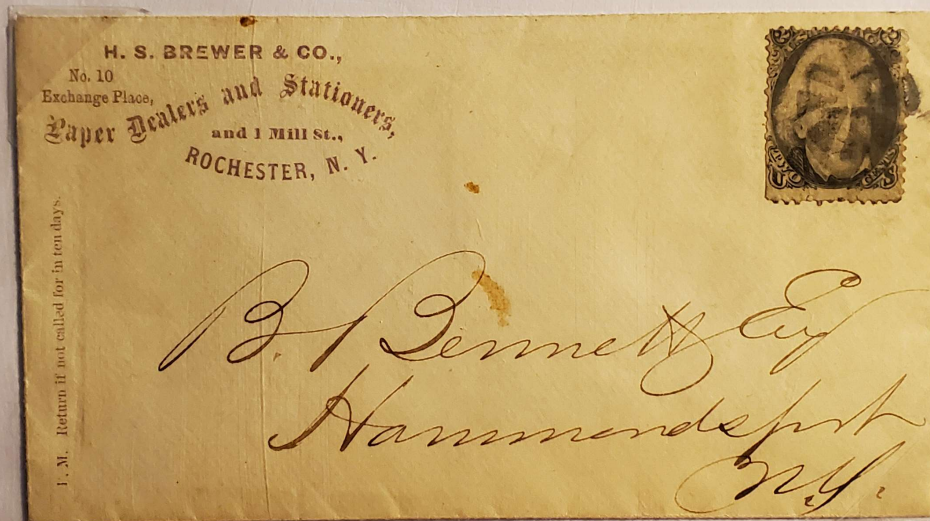 H. S. BREWER & CO.,
No. 10
Exchange Place,
Paper Dealers and Stationers,
and 1 Mill St.,
ROCHESTER, N. Y.
P. M. Return if not called for in ten days.
B. Bennett Esq
Hammondsport
N.Y.
U S